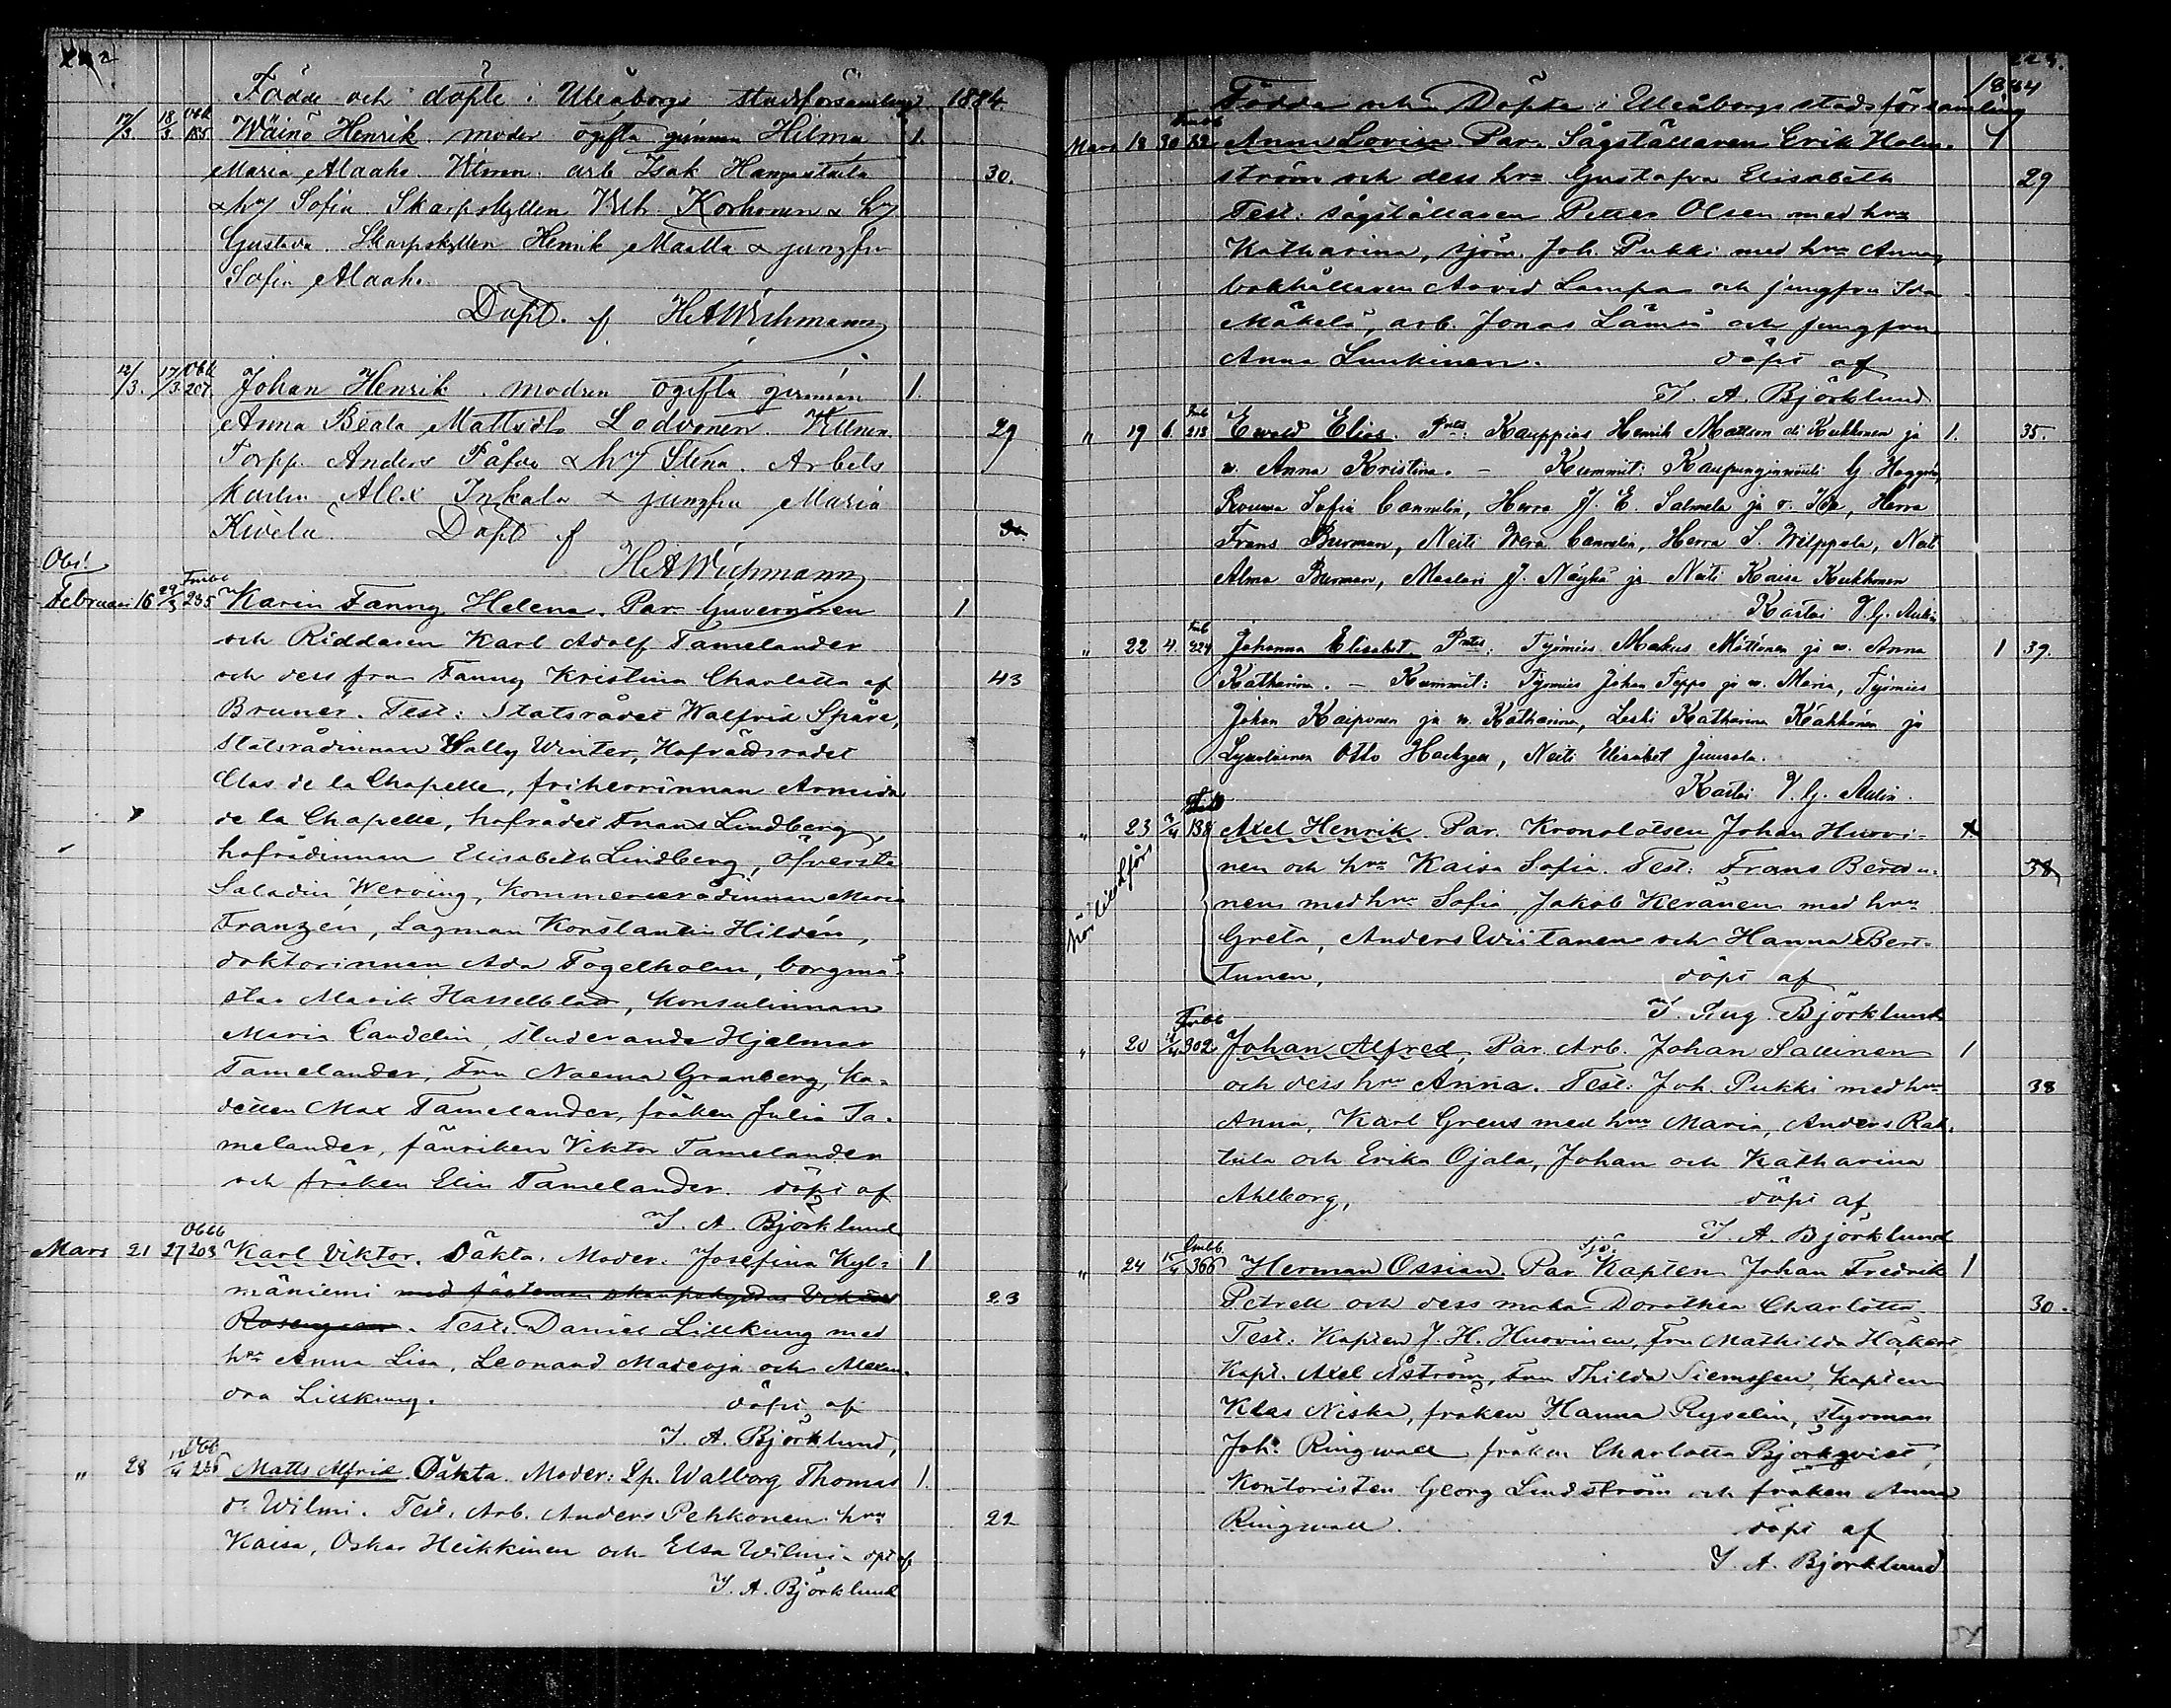 Födde och döpte i Uleåborgs stadsförsamling 1884.
17/3 18/3 185 Wäinö Henrik. moder ogifta qvinnan Hilma 1.
Maria Alaaho. Vittnen: arb Isak Hangastaila 30.
& hu Sofia. Skarpskytten Korhonen & hu
Gustava. Skarpskytten Henrik Maatta & jungfru
Sofia Alaaho.
Döpt af HAWichmann
12/3. 17/3 207. Johan Henrik. modren ogifta qvinnan 1.
Anna Beata Mattsdr Lodvonen. Vittnen. 29
Torpp. Anders Påfvo & hu Stina. Arbets
karlen Alex Inkala & jungfru Maria
Kiwelä. Döpt af
HAWichmann
Obs!
Februari 16 29/3 235 Karin Fanny Helena. Par. Guvernören 1
och Riddaren Karl Adolf Tamelander
och dess fru Fanny Kristina Charlotta af 43
Bruner. Test: Statsrådet Walfrid Spåre,
Statsrådinnan Sally Winter, Hofrådsrådet
Clas de la Chapelle, friherrinnan Armida
de la Chapelle, hofrådet Frans Lindberg,
hofrådinnan Elisabeth Lindberg, öfversta
Saladin Werving, Kommerserådinnan Maria
Franzén, Lagman Konstantin Hildén,
doktorinnan Ada Fogelholm, borgmä-
star Marik Hasselblad, Konsulinnan
Maria Candelin, studerande Hjalmar
Tamelander, Fru Naema Granberg, Ka-
detten Max Tamelander, fröken Julia Ta-
melander, fänriken Viktor Tamelander
och fröken Elin Tamelander. döpt af
I. A. Björklund
Mars 21 27 203 Karl Viktor. Oäkta. Moder. Josefina Kyl- 1
mäniemi med fästeman skarpskytten 23
Test: Daniel Lillkung med
hru Anna Lisa, Leonard Madeoja och Alexan-
dra Lillkung. döpt af
I. A. Björklund,
" 28 12/4 Matts Alfrid Oäkta. Moder: Lp. Walborg Thomas 1.
dr Wilmi. Test. Arb. Anders Pehkonen hru 22
Kaisa, Oskar Heikkinen och Elsa Wilmi döpt af
I. A. Björklund
1884
Födda och Döpta i Uleåborgs stadsförsamling
Mars 18 30 Anna Lovisa Par. Sågställaren Erik Holm- 1
ström och dess hru Gustafva Elisabeth 29
Test: sågställaren Petter Olsen med hru
Katharina, sjöm. Joh. Pukki med hru Anna,
bokhållaren Arvid Lampa och jungfru Ida
Mäkelä, arb. Jonas Lämsä och jungfru
Anna Luukinen. döpt af
I. A. Björklund
" 19 6 213 Ewald Elias. Pntes: Kauppias Henrik Mattson eli Kukkonen ja 1. 35.
w. Anna Kristina. – Kummit: Kaupunginvouti G. Haggrén,
Rouwa Sofia Cannelin, Herra J. E. Salmela ja r. Ida, Herra
Frans Burman, Neiti Wera Cannelin, Herra S. Wilppola, Neiti
Alma Burman, Maalari J. Näyhä ja Neiti Kaisa Kukkonen
Kastoi V. G. Aulin
" 22 4 224 Johanna Elisabet Pntes: Työmies Markus Möttönen ja w. Anna 1 39.
Katharina. – Kummit: Työmies Johan Teppo ja w. Maria, Työmies
Johan Kaiponen ja w. Katharina, Leski Katharina Kähkönen ja
Lyseolainen Otto Hackzell, Neiti Elisabet Juusola.
Kastoi V. G. Aulin.
" 23 2/4 138 Axel Henrik Par. Kronolotsen Johan Huovi-
nen och hru Kaisa Sofia. Test: Frans Bertu- 38
nen med hru Sofia, Jakob Keränen med hru
Greta, Anders Wiitanen och Hanna Bert-
tunen, döpt af
I. Aug. Björklund
" 20 302 Johan Alfred, Par. Arb. Johan Sallinen 1
och dess hru Anna. Test: Joh. Pukki med hru 38
Anna, Karl Greus med hru Maria, Anders Rat-
tula och Erika Ojala, Johan och Katharina
Ahlborg, döpt af
I. A. Björklund
" 24 15/4 366 Herman Ossian. Par. Sjö Kapten Johan Fredrik 1
Petrell och dess maka Dorothea Charlotta 30.
Test: Kapten J. H. Huovinen, fru Mathilda Häkert
Kapt. Axel Åström, Fru Thilda Siemssen, Kapten
Klas Niska, fröken Hanna Ryselin, styrman
Joh. Ringwall fröken Charlotta Björkqvist,
Kontoristen Georg Lindström och fröken Anna
Ringwall. döpt af
I. A. Björklund